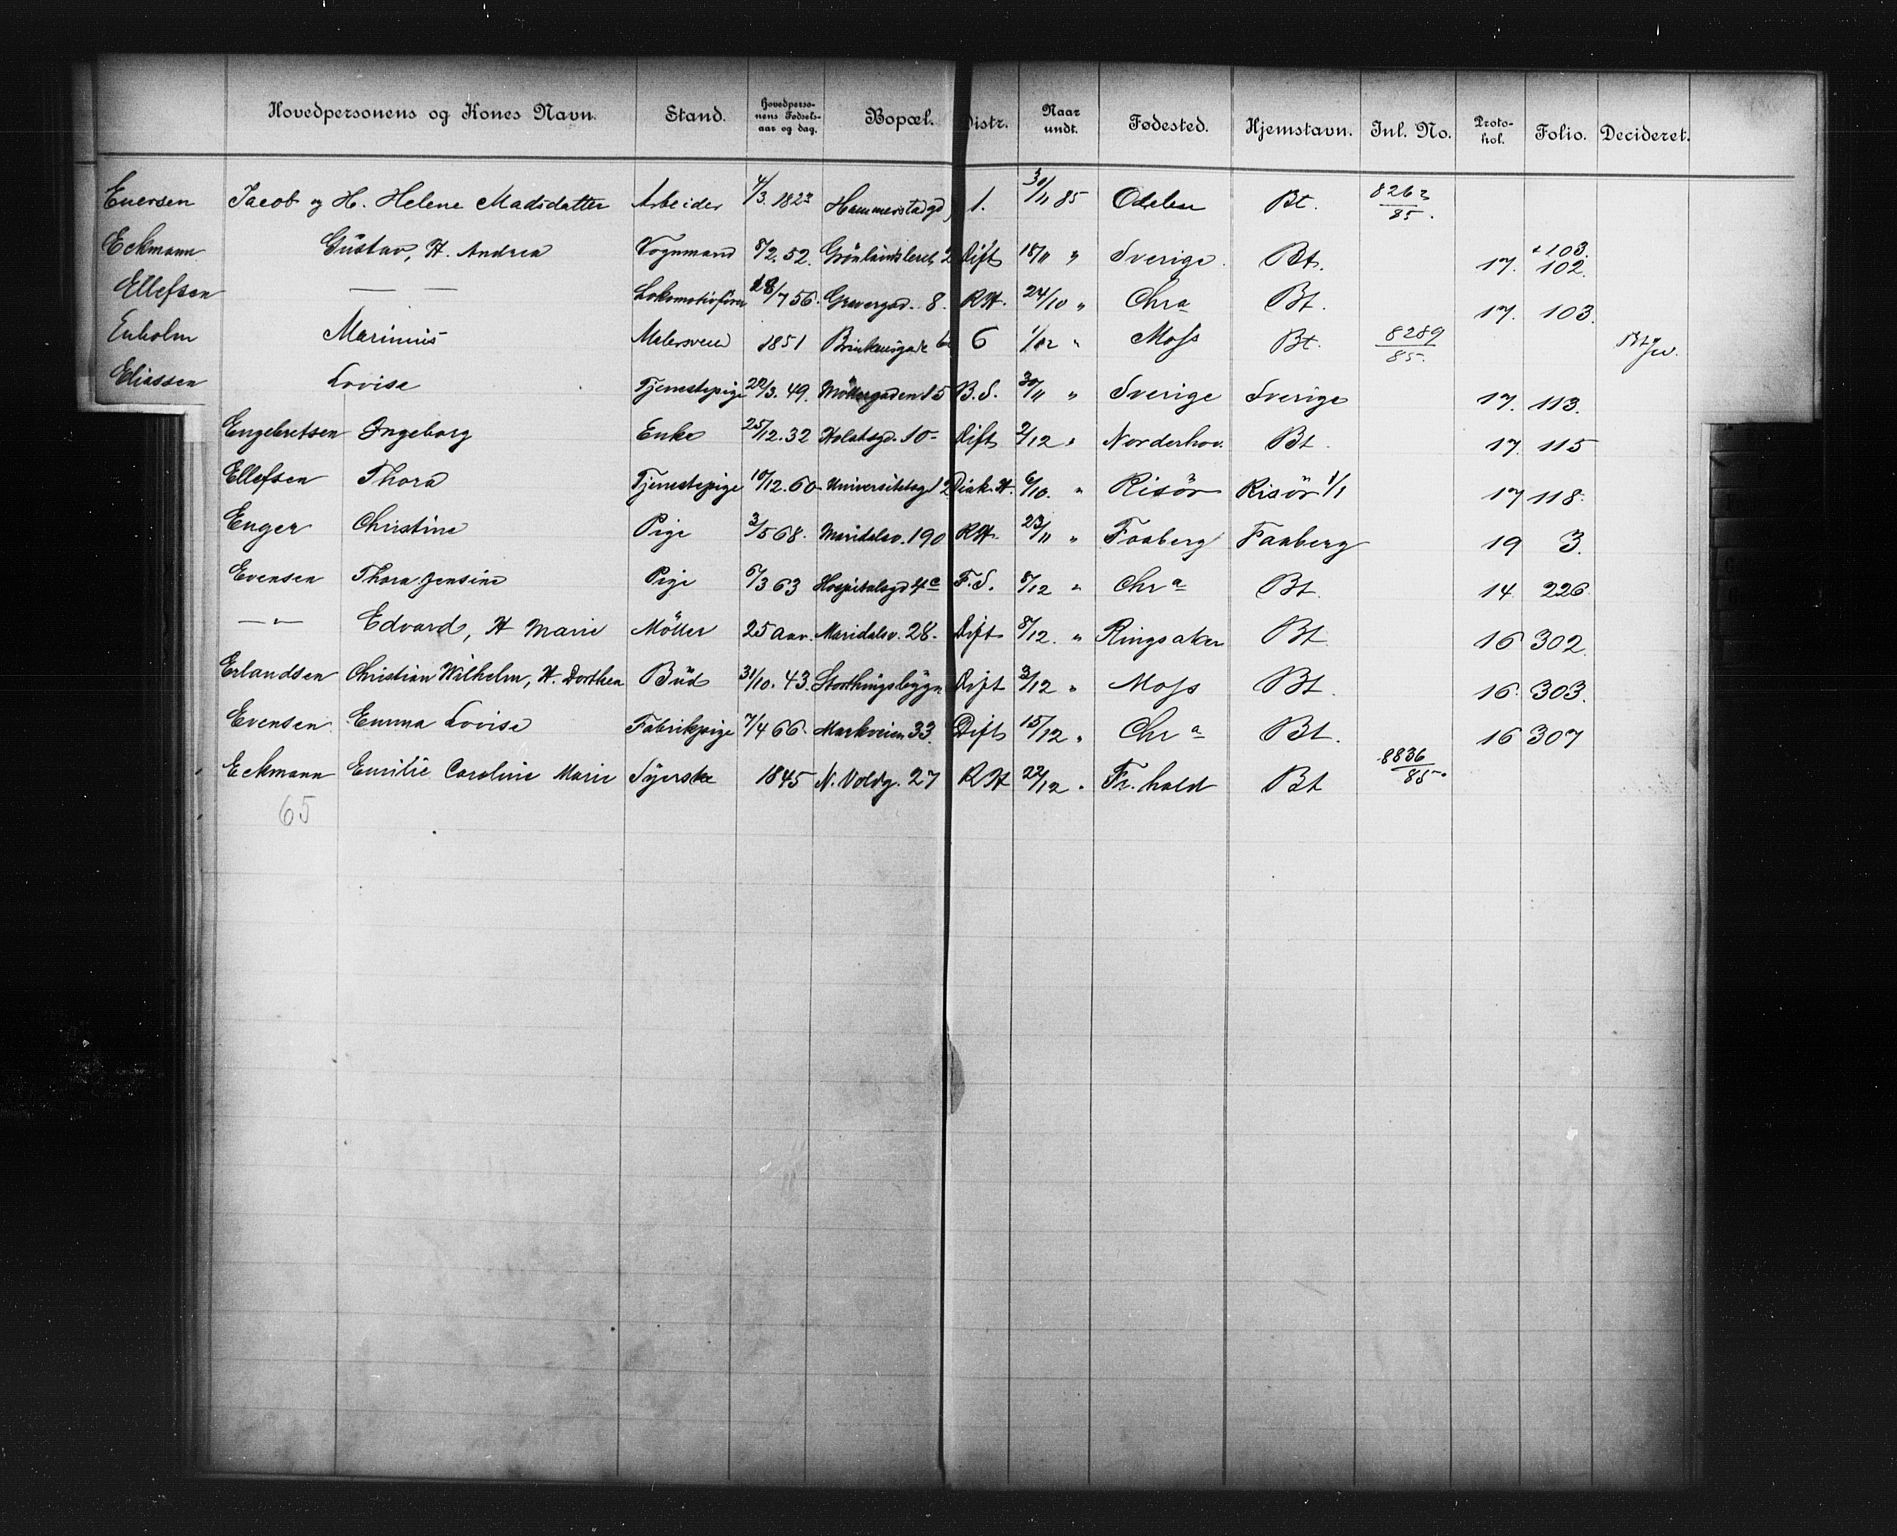 Hovedpersonens og Kones Navn. Stand. Hovedpersonens Fødselsaar og dag. Bopæl. Distr. Naar undt. Fødested. Hjemstavn. Inl. No. Protokol. Folio. Decideret.
Enersen Jacob og H. Helene Madsdatter Arbeider 4/3. 1823 Hammerstadgd 1. 30/11 85 Odalen Bt. 8263/85.
Eckmann Gustav, H. Andrea Vognmand 8/2. 52. Grønlandsleret 2 Dift 18/11 " Sverige. Bt. 17. + 103. 102.
Ellefsen — — Lokomotivfører 28/7 56. Gravergad. 8. RH. 24/10 " Chra Bt. 17. 103.
Enholm Marinius Malersvend 1851 Brinkensgade 6 1/12 " Moss Bt. 8289/85.
Eliassen Lovise Tjenestepige 22/3. 49. Møllergaden 15 B.S. 30/11 " Sverige Sverige 17. 113.
Engebretsen Ingeborg Enke 25/12. 32 Holstsgd. 10 Dift 2/12 " Norderhov. Bt. 17. 115
Ellefsen Thora Tjenestepige 10/12. 60 Universitetsgd 12 Diak. H. 6/10. " Risör Risör 1/1 17 118.
Enger Christine Pige 3/5 68. Maridalsv. 190 RH. 23/11 " Faaberg Faaberg 19 3.
Evensen Thora Jensine Pige 6/3 63 Hospitalsgd 4c F.S. 8/12 " Chra Bt. 14 226
— " — Edvard, H Marie Möller 25 Aar. Maridalsv. 28. Dift 8/12. " Ringsaker Bt 16 302.
Erlandsen Christian Wilhelm, H. Dorthea Bud 31/10. 43. Storthingsbygn Dift 3/12 " Moss Bt. 16. 303.
Evensen. Emma Lovise Fabrikpige 7/4 66. Markveien 33. Dift 15/12 " Chra Bt. 16 307
Eckmann Emilie Caroline Marie Syerske 1845 N. Voldg. 27 RH 22/12 " Fr. hald Bt 8836/85
65